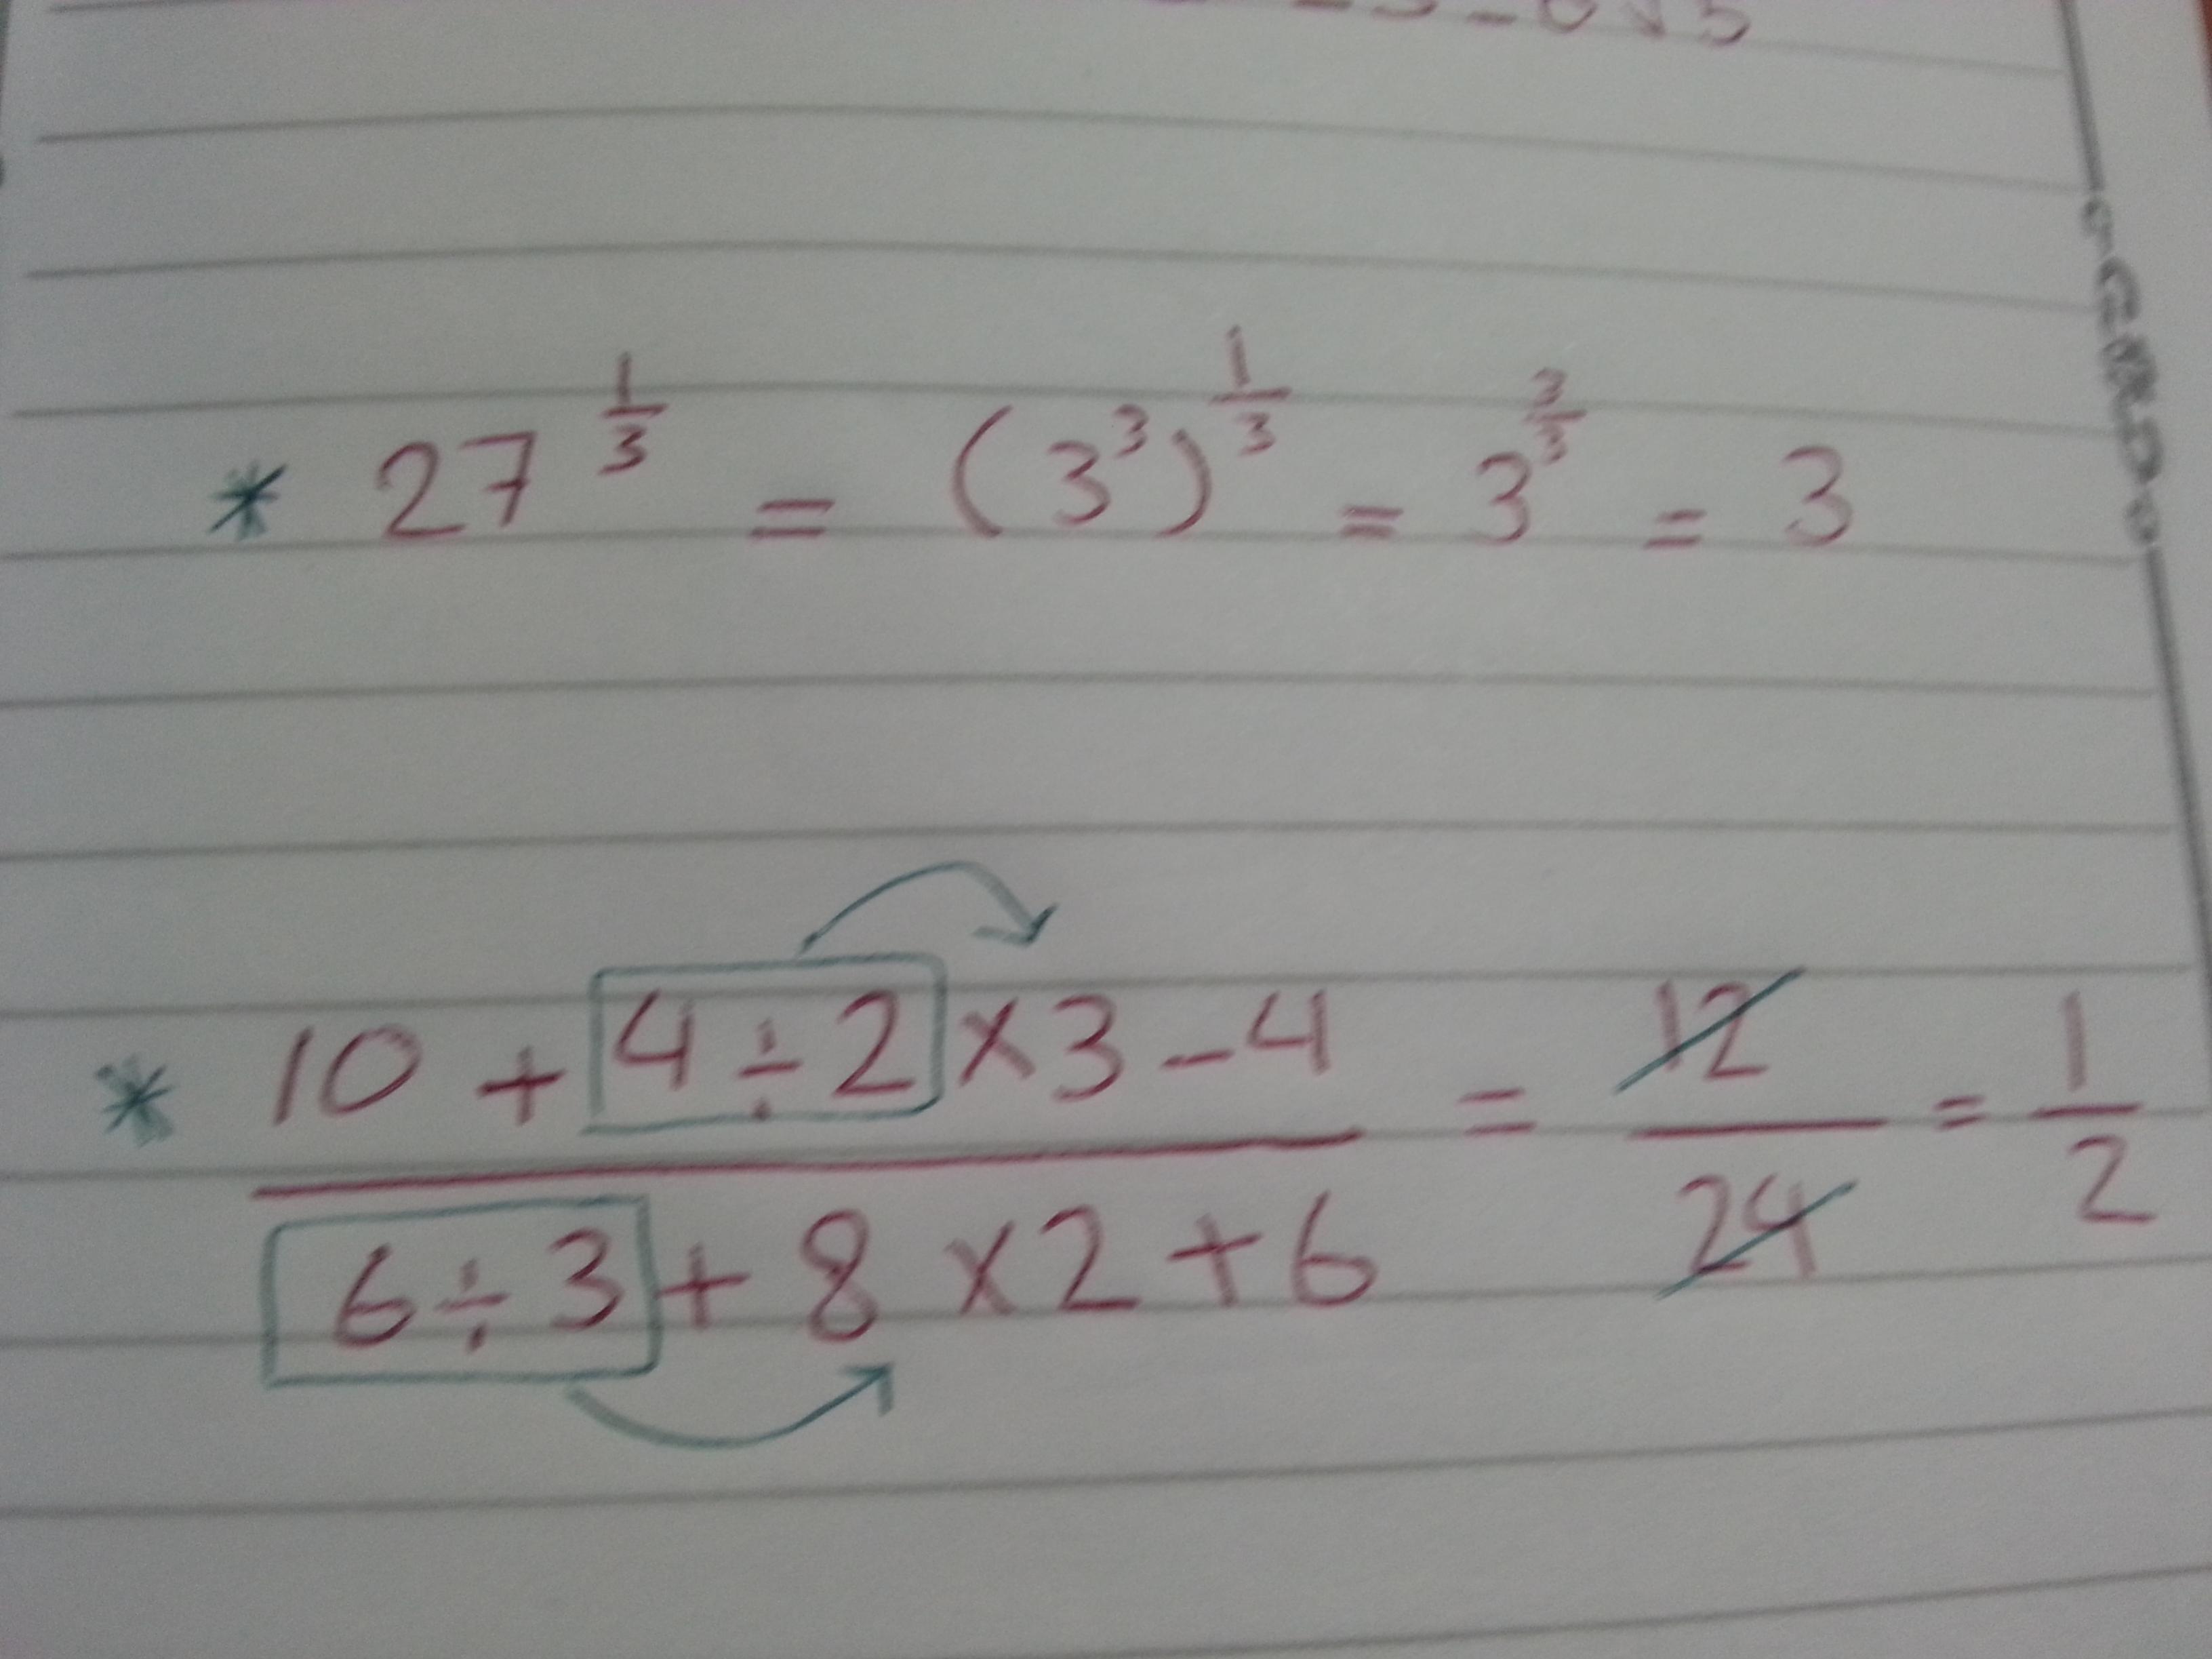 * 27^(1/3) = (3^3)^(1/3) = 3^(3/3) = 3
* (10 + 4 ÷ 2 × 3 - 4) / (6 ÷ 3 + 8 × 2 + 6) = 12/24 = 1/2